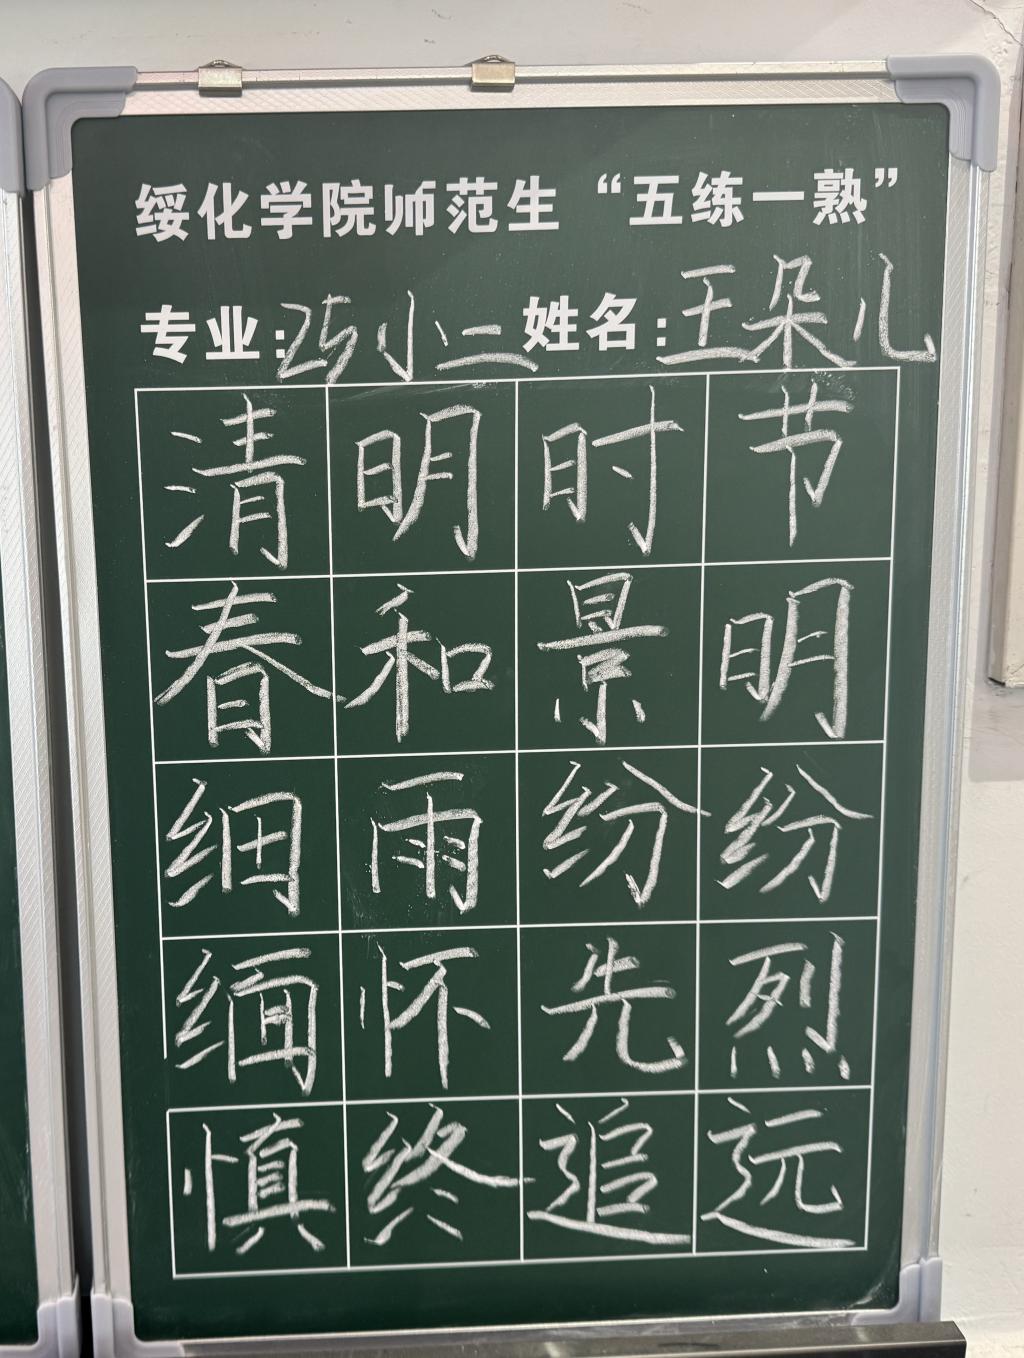 绥化学院师范生“五练一熟”
专业:25小二 姓名:王朵儿
清明时节
春和景明
细雨纷纷
缅怀先烈
慎终追远